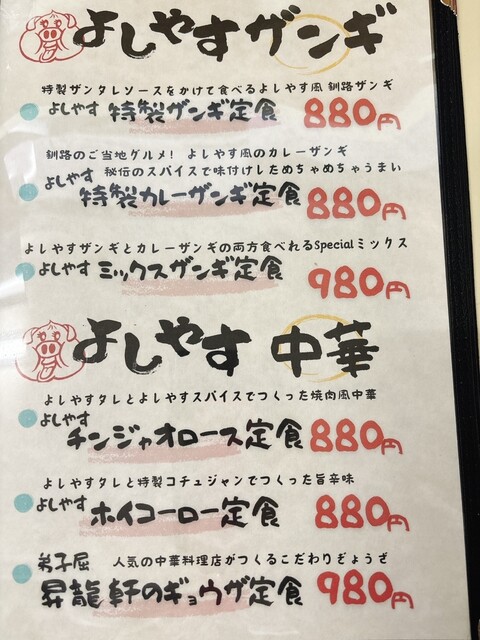 よしやすザンギ
特製ザンタレソースをかけて食べるよしやす風 釧路ザンギ
よしやす 特製ザンギ定食 880円
釧路のご当地グルメ! よしやす風のカレーザンギ
秘伝のスパイスで味付けしためちゃめちゃうまい
よしやす 特製カレーザンギ定食 880円
よしやすザンギとカレーザンギの両方食べれるSpecialミックス
よしやす ミックスザンギ定食 980円
よしやす 中華
よしやすタレとよしやすスパイスでつくった焼肉風中華
よしやす チンジャオロース定食 880円
よしやすタレと特製コチュジャンでつくった旨辛味
よしやす ホイコーロー定食 880円
弟子屈 人気の中華料理店がつくるこだわりぎょうざ
昇龍軒のギョウザ定食 980円